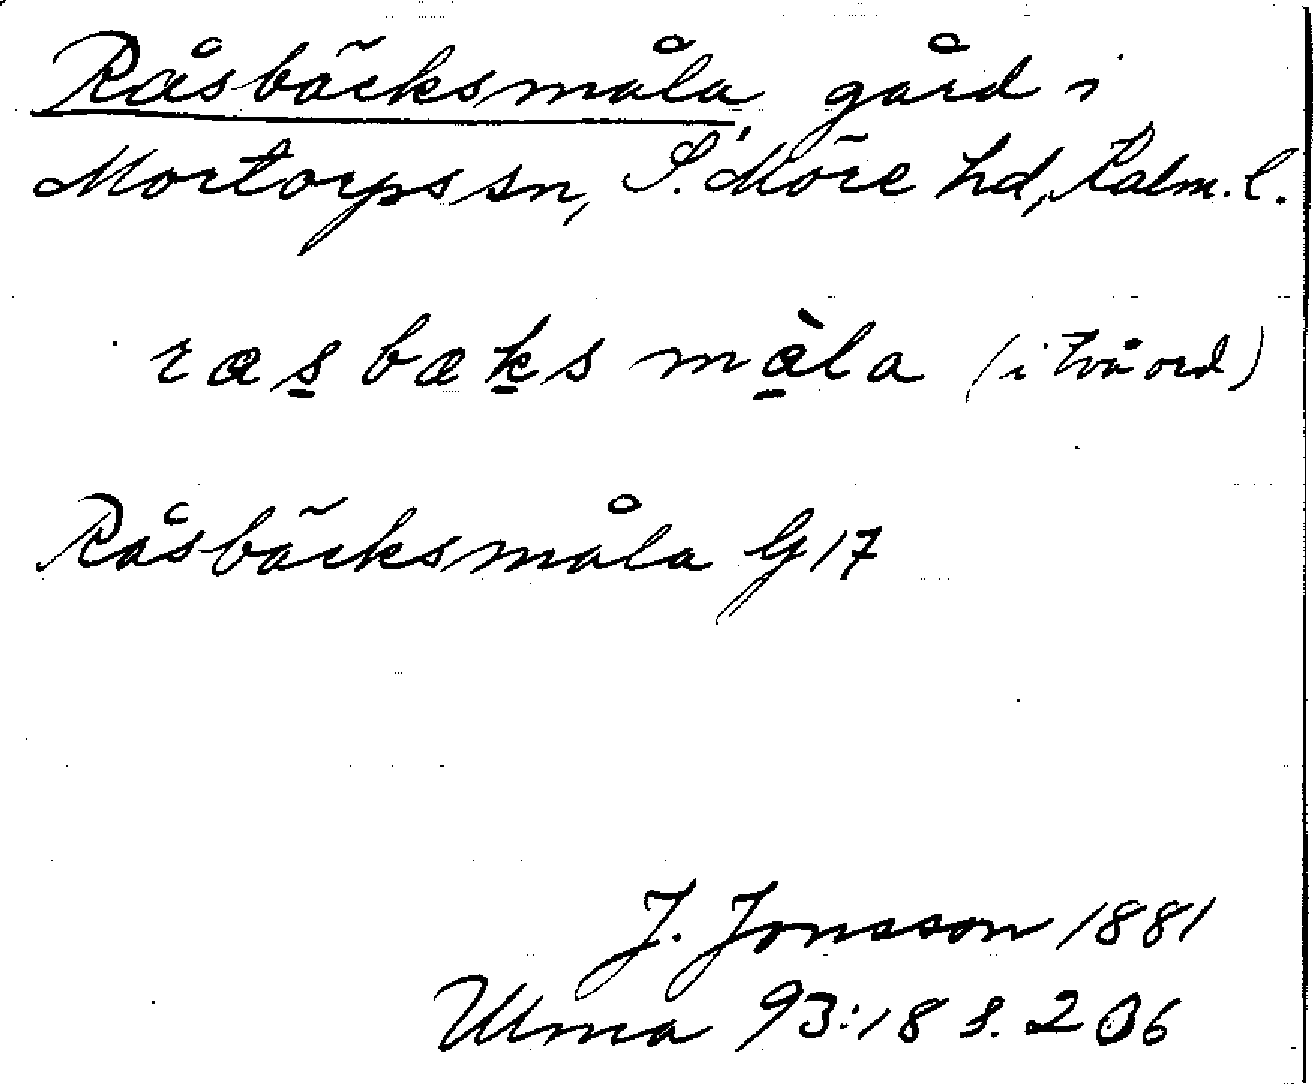 Råsbäcksmåla, gård i
Mortorps sn, S. Möre hd, Kalm. l.
ræs bæks måla (i två ord)
Råsbäcksmåla G 17
J. Jonsson 1881
Ulma 93:18 s. 206